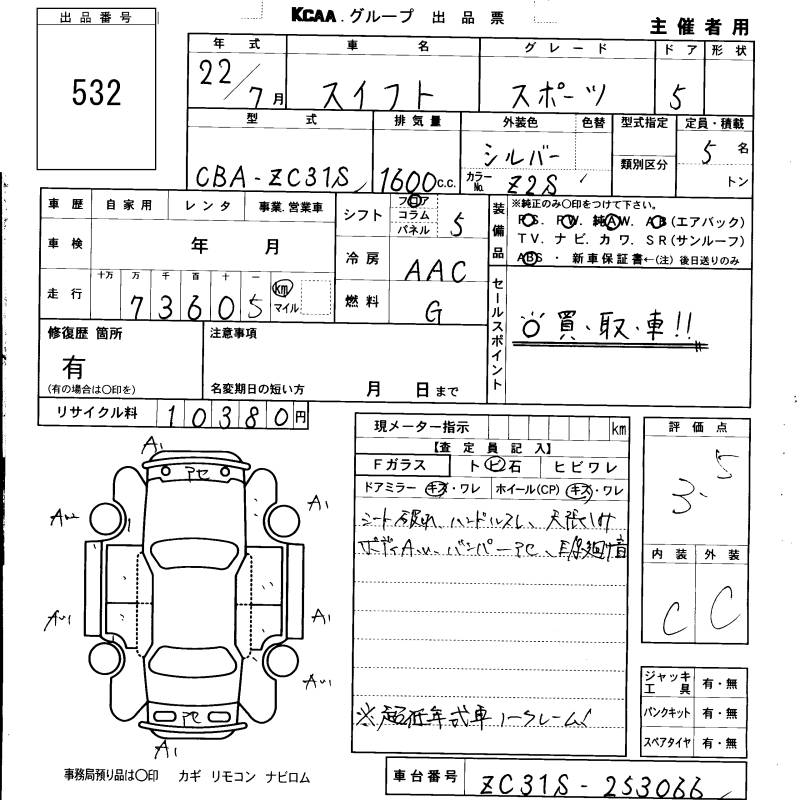 KCAA.グループ 出品票
主催者用
出品番号
532
年式 車名 グレード ドア 形状
22/7月 スイフト スポーツ 5
型式 排気量 外装色 色替 型式指定 定員・積載
CBA-ZC31S 1600c.c. シルバー 5名
カラーNo. Z2S 類別区分 トン
車歴 自家用 レンタ 事業.営業車
車検 年 月
走行 十万 万 千 百 十 一
73605 km マイル
シフト フロア コラム パネル 5
冷房 AAC
燃料 G
装備品
※純正のみ〇印をつけて下さい。
P.S. P.W. 純A.W. A.B(エアバック)
T.V. ナビ. カワ. S R(サンルーフ)
ABS ・ 新車保証書←(注) 後日送りのみ
セールスポイント
◎買・取・車!!
修復歴 箇所
有
(有の場合は〇印を)
注意事項
名変期日の短い方 月 日まで
リサイクル料 10380円
現メーター指示 km
【査定員記入】
Fガラス トビ石 ヒビワレ
ドアミラー キズ・ワレ ホイール(CP) キズ・ワレ
シート破れ、ハンドルスレ、天張シミ
ボディAu、バンパーアセ、
※超低年式車 ノークレーム!
評価点
3.5
内装 外装
C C
A1
アセ
A1
Au2
Au1
A1
Au1
アセ
A1
ジャッキ工具 有・無
パンクキット 有・無
スペアタイヤ 有・無
事務局預り品は〇印 カギ リモコン ナビロム
車台番号 ZC31S-253066